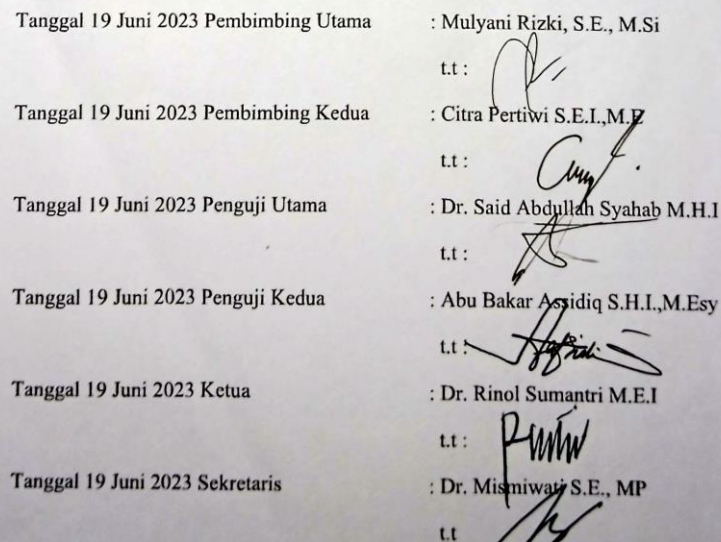 Tanggal 19 Juni 2023 Pembimbing Utama : Mulyani Rizki, S.E., M.Si
t.t :
Tanggal 19 Juni 2023 Pembimbing Kedua : Citra Pertiwi S.E.I.,M.E
t.t :
Tanggal 19 Juni 2023 Penguji Utama : Dr. Said Abdullah Syahab M.H.I
t.t :
Tanggal 19 Juni 2023 Penguji Kedua : Abu Bakar Assidiq S.H.I.,M.Esy
t.t :
Tanggal 19 Juni 2023 Ketua : Dr. Rinol Sumantri M.E.I
t.t :
Tanggal 19 Juni 2023 Sekretaris : Dr. Mismiwati S.E., MP
t.t